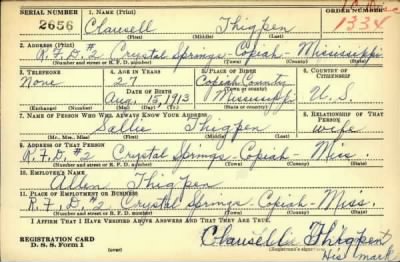 SERIAL NUMBER 1. NAME (Print) ORDER NUMBER
2656 Clausell Thigpen 1334
(First) (Middle) (Last)
2. ADDRESS (Print)
R.F.D. #2 Crystal Springs - Copiah - Mississippi
(Number and street or R. F. D. number) (Town) (County) (State)
3. TELEPHONE 4. AGE IN YEARS 5. PLACE OF BIRTH 6. COUNTRY OF CITIZENSHIP
None 27 Copiah County
DATE OF BIRTH (Town or county)
Aug. 5, 1913 Mississippi U.S.
(Exchange) (Number) (Mo.) (Day) (Yr.) (State or country)
7. NAME OF PERSON WHO WILL ALWAYS KNOW YOUR ADDRESS 8. RELATIONSHIP OF THAT PERSON
Sallie Thigpen wife
(Mr., Mrs., Miss) (First) (Middle) (Last)
9. ADDRESS OF THAT PERSON
R.F.D. #2 Crystal Springs - Copiah - Miss.
(Number and street or R. F. D. number) (Town) (County) (State)
10. EMPLOYER'S NAME
Allen Thigpen
11. PLACE OF EMPLOYMENT OR BUSINESS
R.F.D. #2 Crystal Springs - Copiah - Miss.
(Number and street or R. F. D. number) (Town) (County) (State)
I AFFIRM THAT I HAVE VERIFIED ABOVE ANSWERS AND THAT THEY ARE TRUE.
REGISTRATION CARD
D. S. S. FORM 1 (over) Clausell Thigpen
His mark